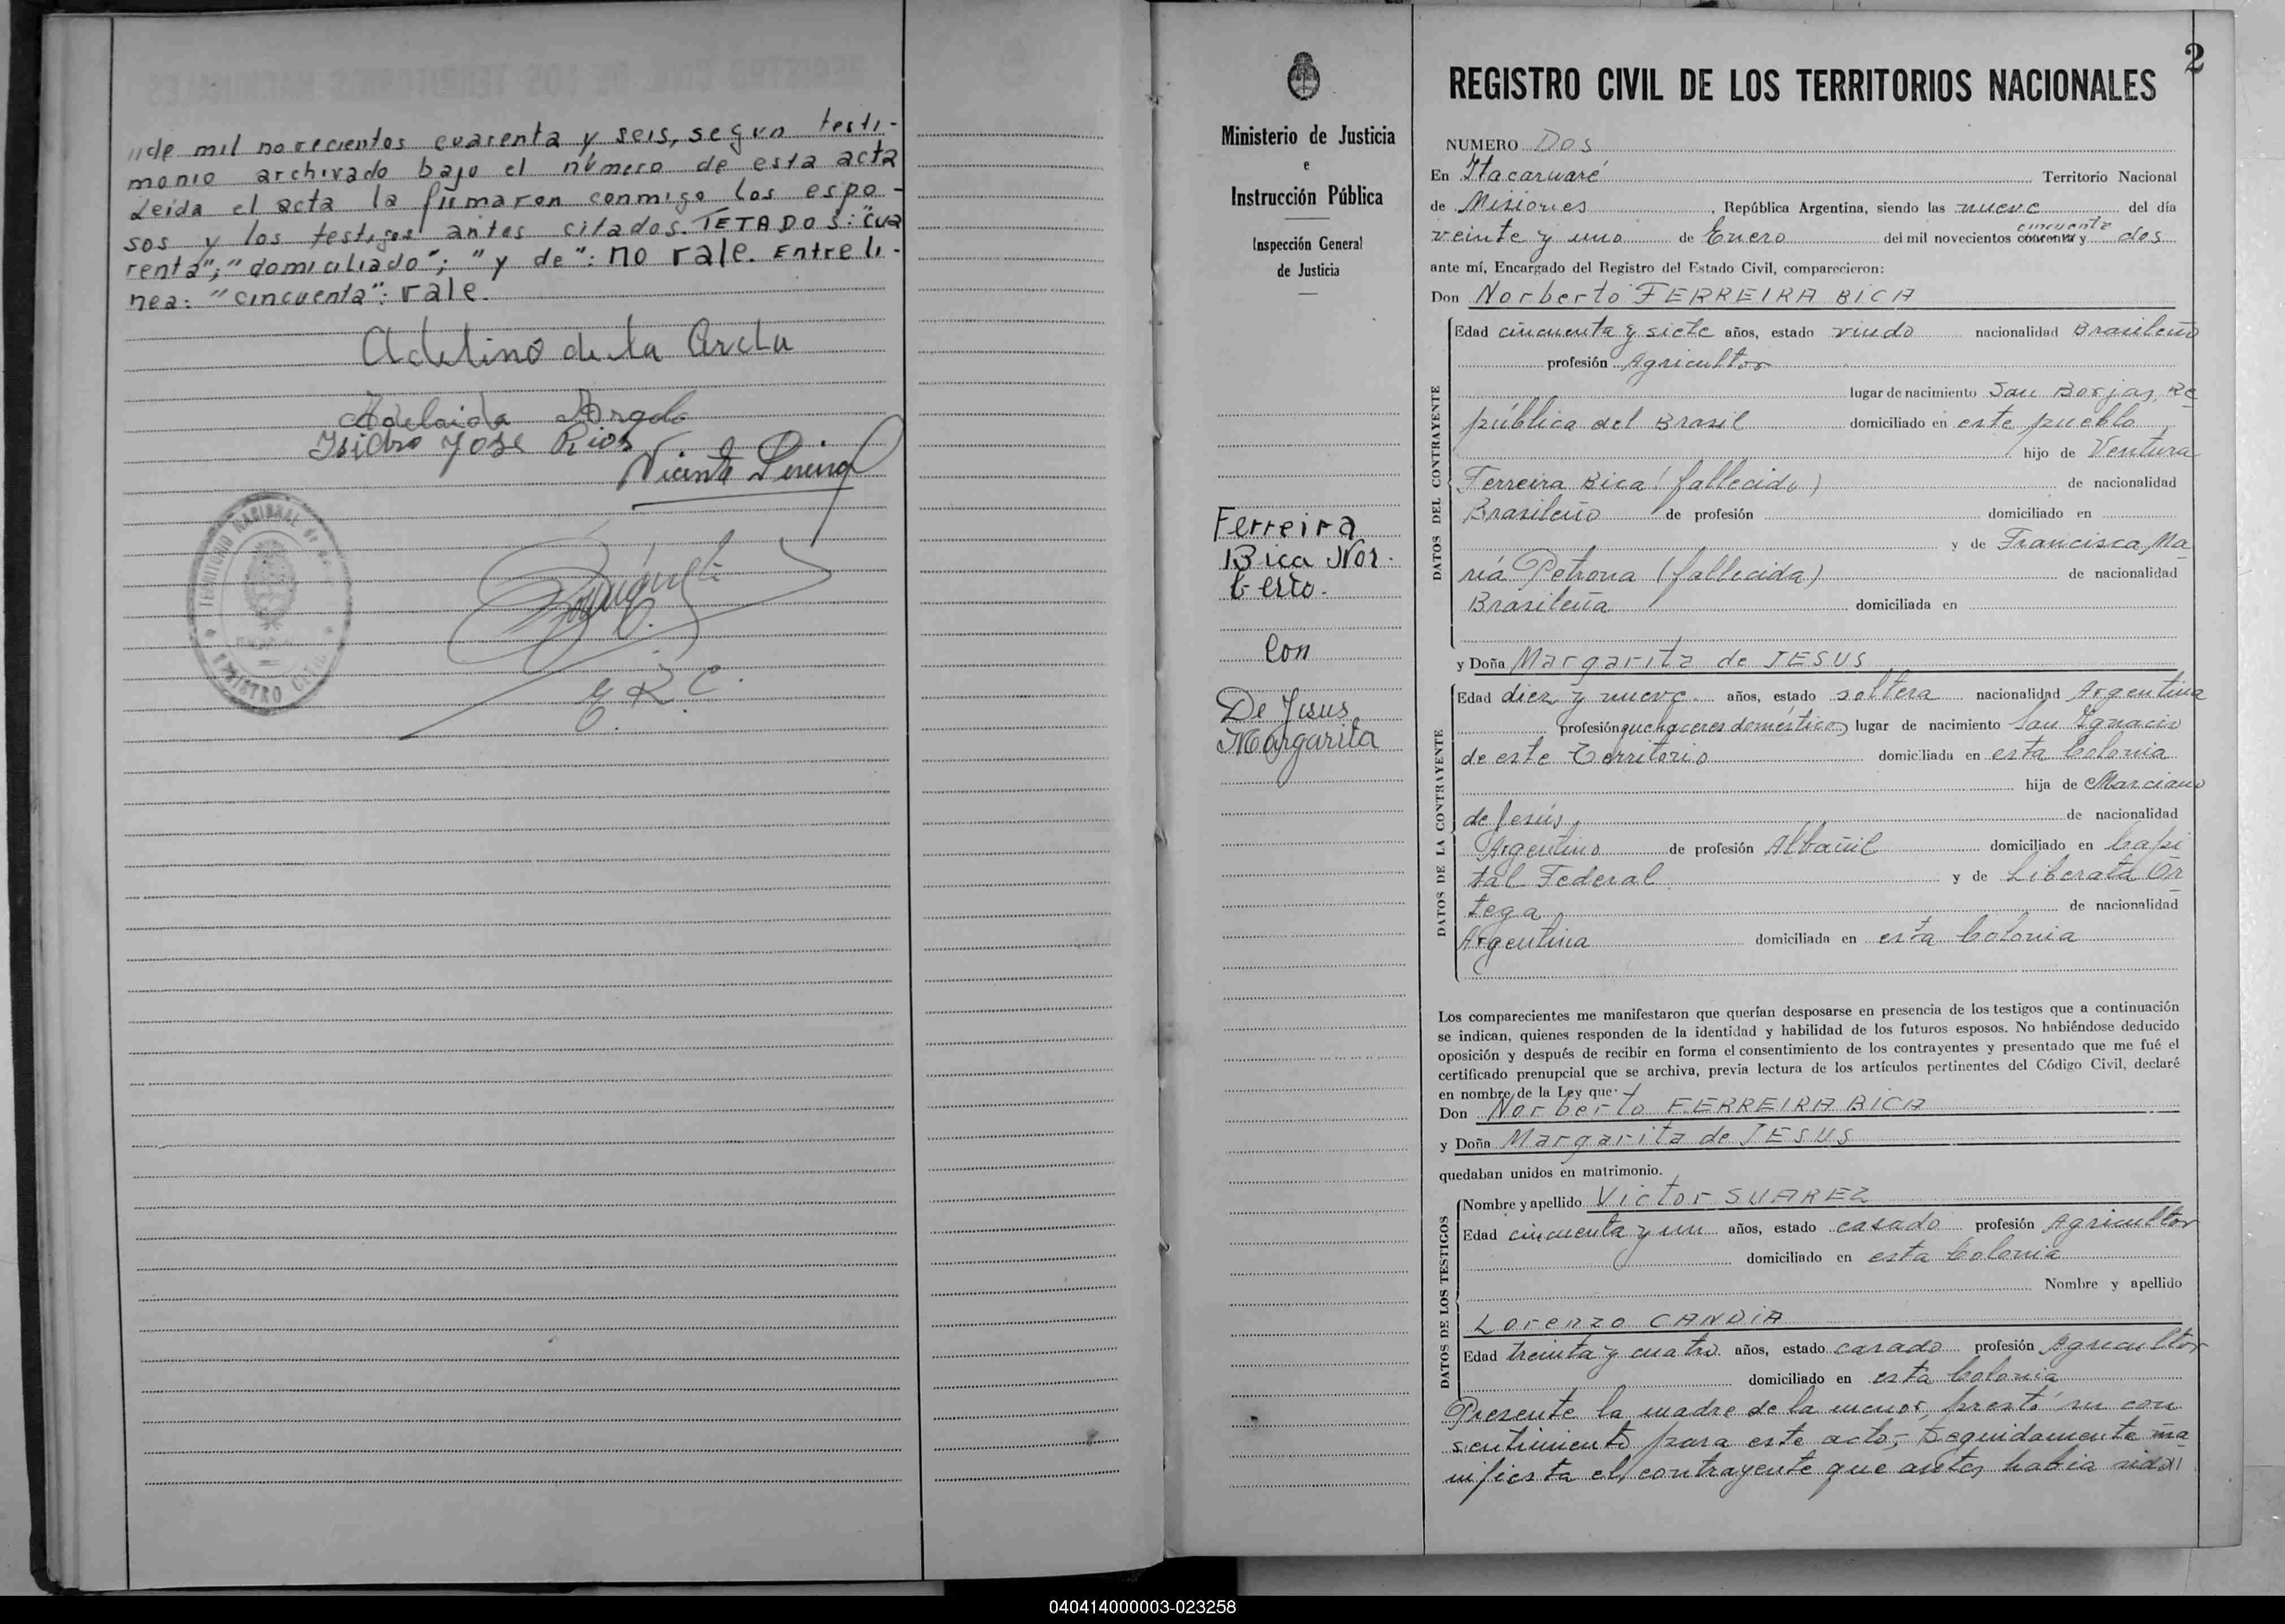 "de mil novecientos cuarenta y seis, segun testi-
monio archivado bajo el número de esta acta
Leida el acta la firmaron conmigo los espo-
sos y los testigos antes citados. TETADOS: "cua
renta"; "domiciliado"; "y de": no vale. Entre li-
nea: "cincuenta": vale.
Adelino de la
Adelaida
Isidro José Rios
Vicente Pereira
TERRITORIO NACIONAL
REGISTRO CIVIL
E. R. C.
2
Ministerio de Justicia
e
Instrucción Pública
Inspección General
de Justicia
Ferreira
Bica Nor-
berto.
Con
De Jesus
Margarita
REGISTRO CIVIL DE LOS TERRITORIOS NACIONALES
NUMERO Dos
En Itacaruaré Territorio Nacional
de Misiones, República Argentina, siendo las nueve del día
veinte y uno de Enero del mil novecientos cuarenta y cincuenta dos
ante mí, Encargado del Registro del Estado Civil, comparecieron:
Don Norberto FERREIRA BICA
DATOS DEL CONTRAYENTE
Edad cincuenta y siete años, estado viudo nacionalidad Brasileño
profesión Agricultor
lugar de nacimiento San Borjas, Re
pública del Brasil domiciliado en este pueblo
hijo de Ventura
Ferreira Bica (fallecido) de nacionalidad
Brasileño de profesión domiciliado en
y de Francisca Ma
ría Petrona (fallecida) de nacionalidad
Brasileña domiciliada en
y Doña Margarita de JESUS
DATOS DE LA CONTRAYENTE
Edad diez y nueve años, estado soltera nacionalidad Argentina
profesión quehaceres domésticos lugar de nacimiento San Ignacio
de este Territorio domiciliada en esta Colonia
hija de Marciano
de Jesús, de nacionalidad
Argentino de profesión Albañil domiciliado en Capi
tal Federal y de Liberata Or
tega de nacionalidad
Argentina domiciliada en esta Colonia
Los comparecientes me manifestaron que querían desposarse en presencia de los testigos que a continuación
se indican, quienes responden de la identidad y habilidad de los futuros esposos. No habiéndose deducido
oposición y después de recibir en forma el consentimiento de los contrayentes y presentado que me fué el
certificado prenupcial que se archiva, previa lectura de los artículos pertinentes del Código Civil, declaré
en nombre de la Ley que
Don Norberto FERREIRA BICA
y Doña Margarita de JESUS
quedaban unidos en matrimonio.
DATOS DE LOS TESTIGOS
Nombre y apellido Victor SUAREZ
Edad cincuenta y un años, estado casado profesión Agricultor
domiciliado en esta Colonia
Nombre y apellido
Lorenzo CANDIA
Edad treinta y cuatro años, estado casado profesión Agricultor
domiciliado en esta Colonia
Presente la madre de la menor, prestó su con
sentimiento para este acto,- Seguidamente ma
nifiesta el contrayente que antes habia sido"
040414000003-023258